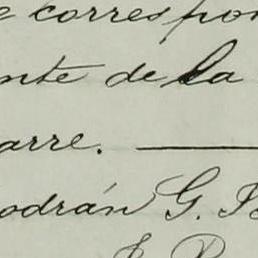 e correspon
nte de la
arre. —
odrán G.